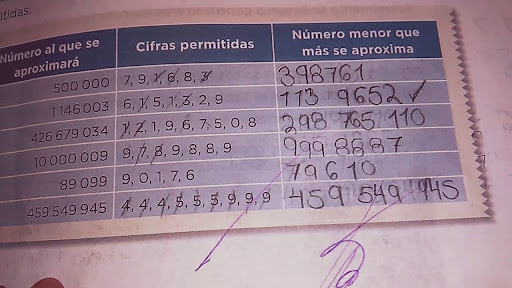 ltidas.
Número al que se aproximará Cifras permitidas Número menor que más se aproxima
500 000 7, 9, 1, 6, 8, 3 398761
1 146 003 6, 1, 5, 1, 3, 2, 9 113 9652 ✓
426 679 034 1, 2, 1, 9, 6, 7, 5, 0, 8 298 765 110
10 000 009 9, 7, 8, 9, 8, 8, 9 999 8687
89 099 9, 0, 1, 7, 6 79610
459 549 945 4, 4, 4, 5, 5, 5, 9, 9, 9 459 549 945